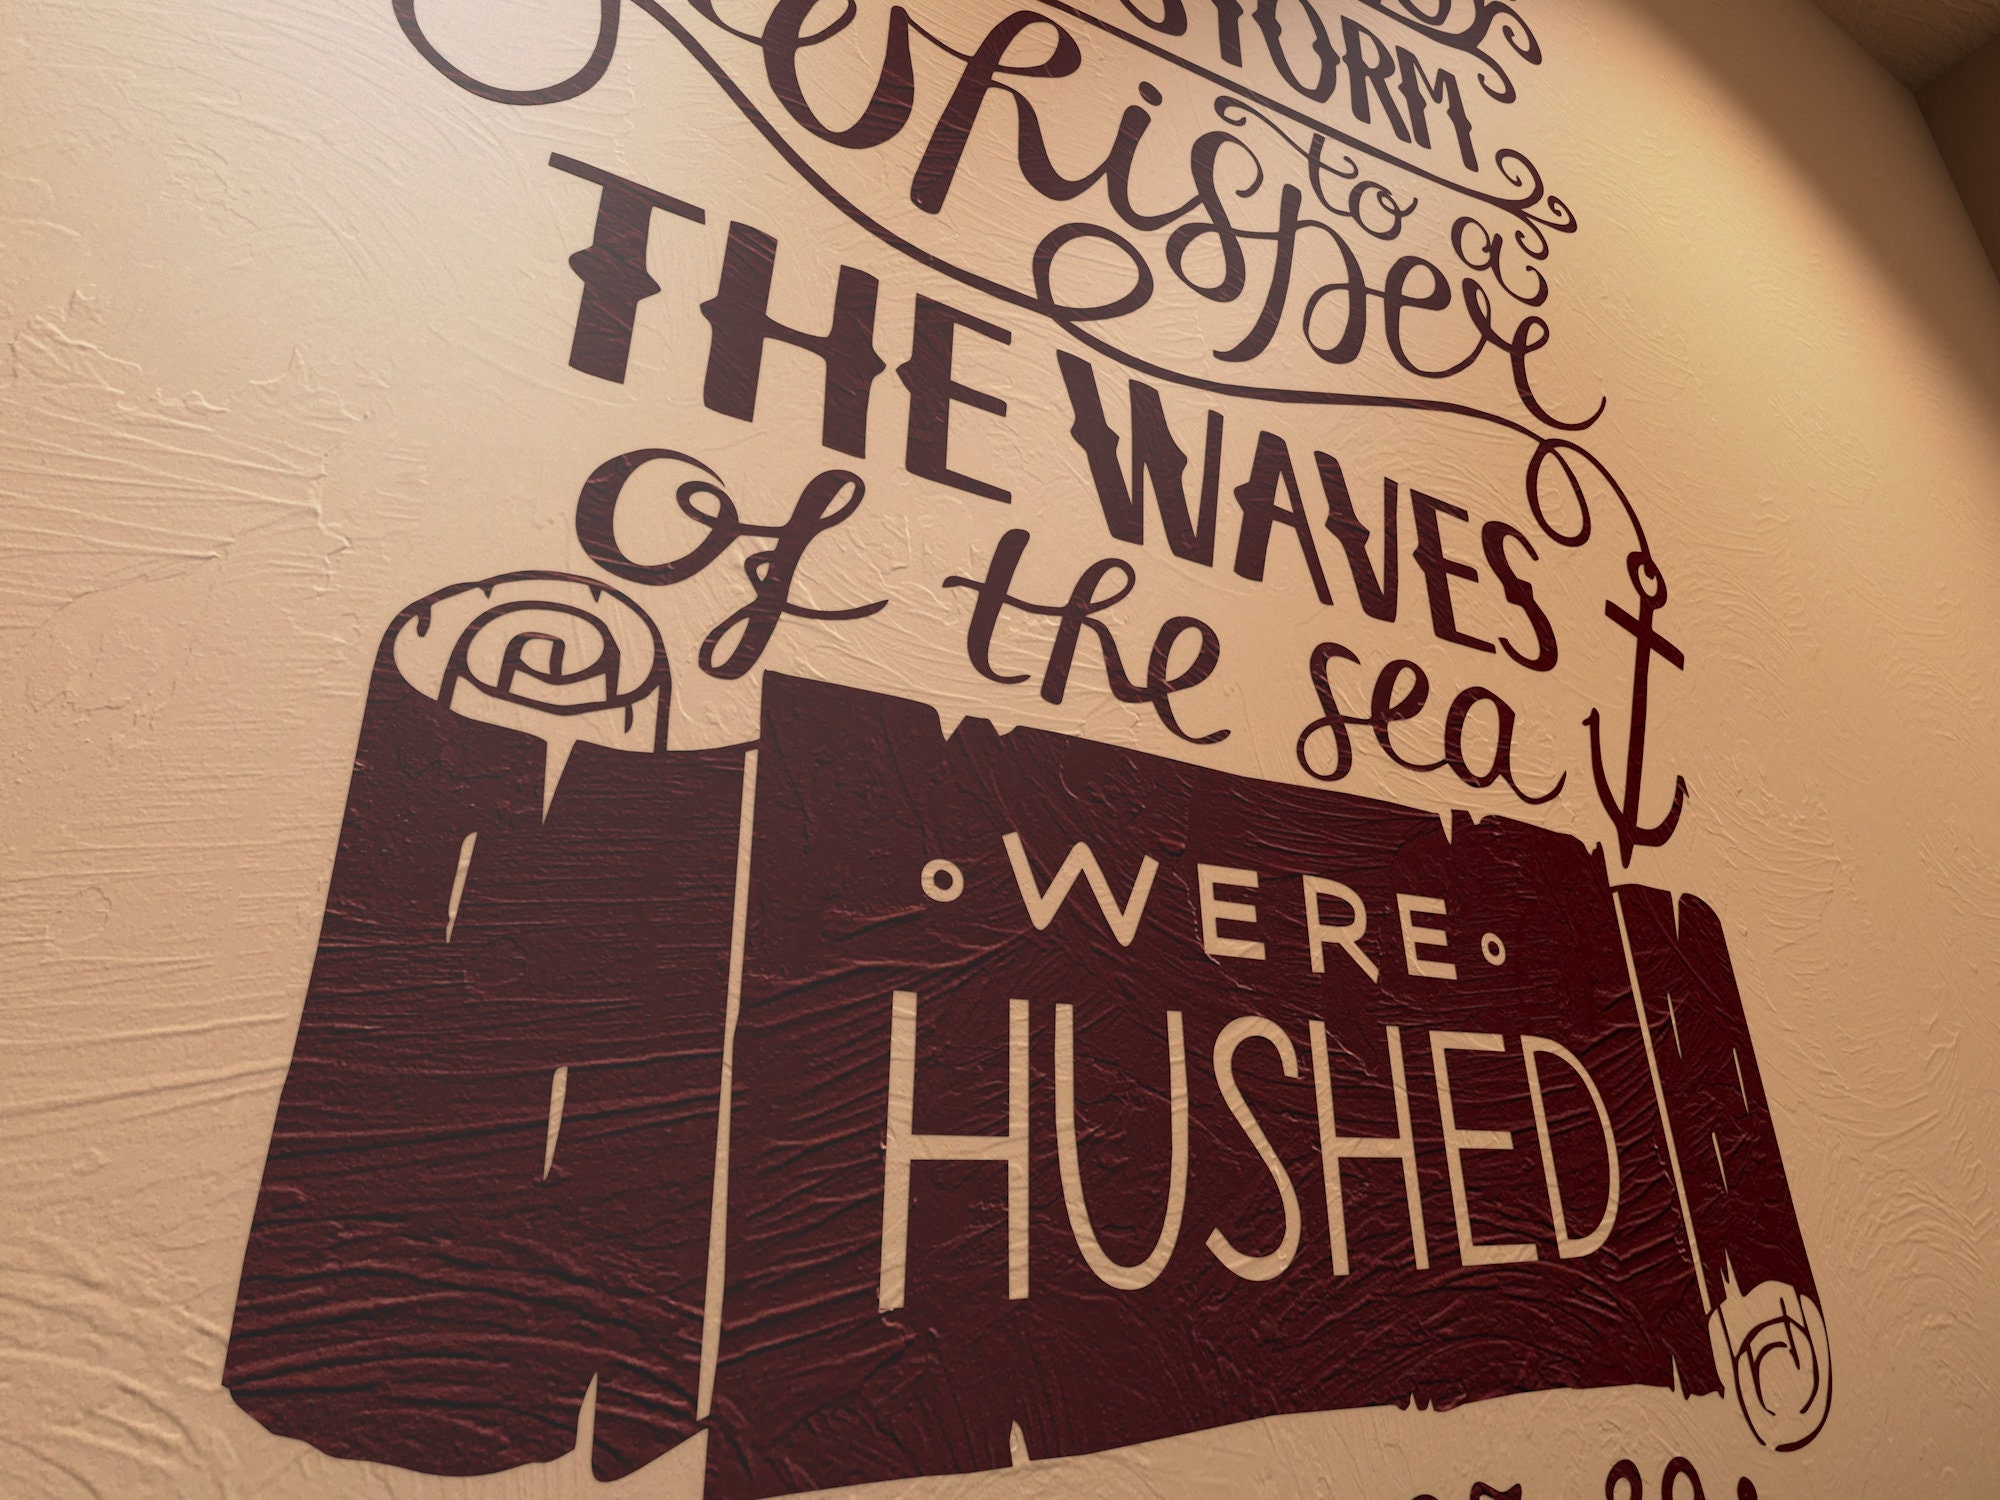 STORM
to a
whisper
THE WAVES
of the sea
WERE
HUSHED